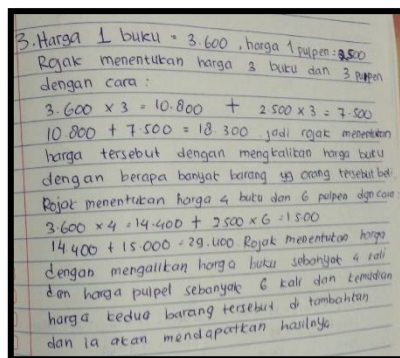 3. Harga 1 buku = 3.600, harga 1 pulpen = 2500
Rojak menentukan harga 3 buku dan 3 pulpen
dengan cara :
3.600 x 3 = 10.800 + 2500 x 3 = 7.500
10.800 + 7.500 = 18.300 jadi rojak menentukan
harga tersebut dengan mengkalikan harga buku
dengan berapa banyak barang yg orang tersebut beli
Rojak menentukan harga 4 buku dan 6 pulpen dgn cara:
3.600 x 4 = 14.400 + 2500 x 6 = 1500
14.400 + 15.000 = 29.400 Rojak menentukan harga
dengan mengalikan harga buku sebanyak 4 kali
dan harga pulpel sebanyak 6 kali dan kemudian
harga kedua barang tersebut di tambahkan
dan ia akan mendapatkan hasilnya